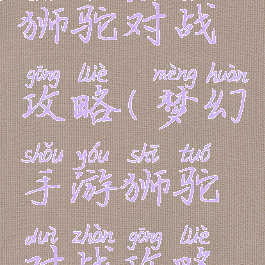 狮驼对战
gōng lüè mèng huàn
攻略(梦幻
shǒu yóu shī tuó
手游狮驼
duì zhàn gōng lüè
对战攻略